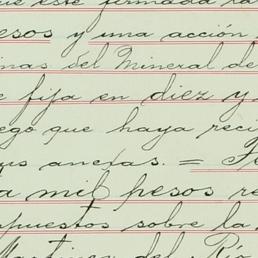 que este firmada ra
pesos y una acción
inas del Mineral de
e fija en diez y
ego que haya reci
us anexas. =
a mil pesos re
puestos sobre la
Martinez del Río